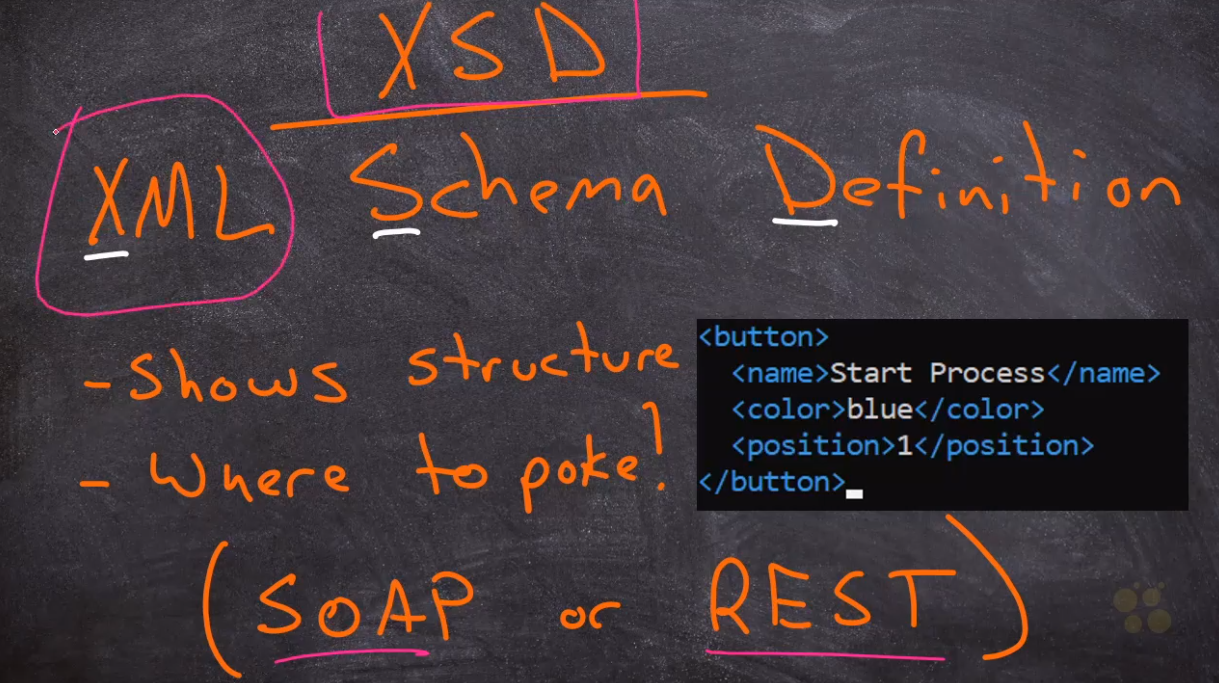 XSD
XML Schema Definition
- Shows structure
- Where to poke!
<button>
<name>Start Process</name>
<color>blue</color>
<position>1</position>
</button>
(SOAP or REST)